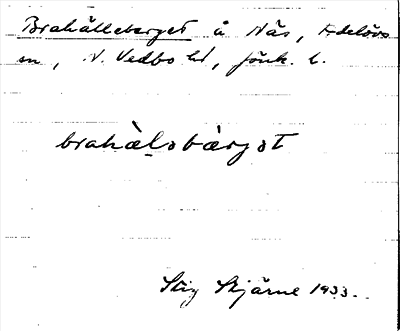 Brahälleberget å Näs, Adelövs
sn, N. Vedbo hd, Jönk. l.
brahàl̠ɘbàrjɘt
Stig Stjärne 1933.